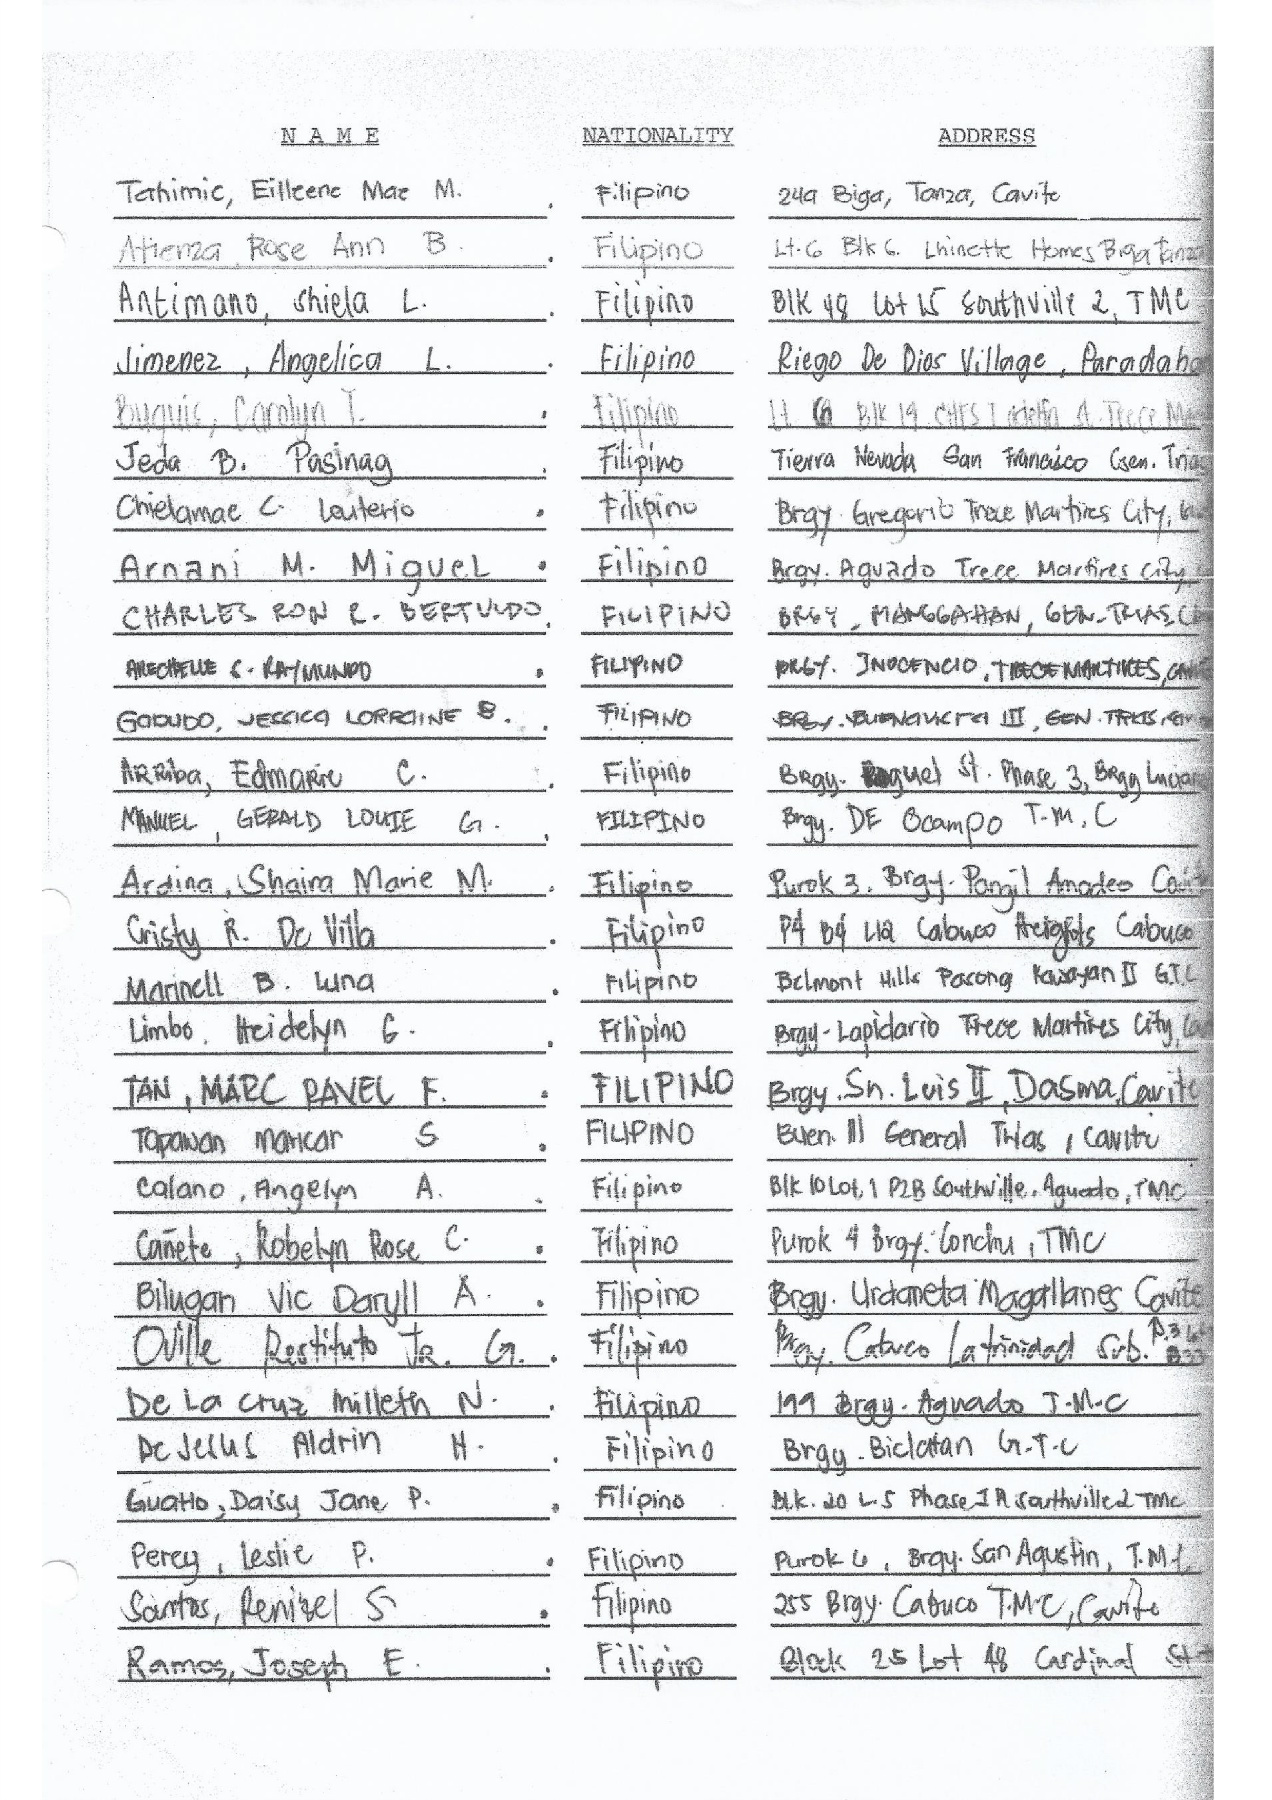 N A M E NATIONALITY ADDRESS
Tahimic, Eilleene Mae M. Filipino 249 Biga, Tanza, Cavite
Atienza Rose Ann B. Filipino Lt. 6 Blk 6. Lhinette Homes Biga Tanza
Antimano, Shiela L. Filipino Blk 48 Lot 15 Southville 2, TMC
Jimenez, Angelica L. Filipino Riego De Dios Village, Paradaho
Buquis, Carolyn T. Filipino Lt. 6 Blk 19 St. Trece
Jeda B. Pasinag Filipino Tierra Nevada San Francisco Gen. Trias
Chielamae C. Leuterio Filipino Brgy Gregorio Trece Martires City,
Arnani M. Miguel Filipino Brgy. Aguado Trece Martires City
CHARLES RON R. BERTULDO. FILIPINO BRGY. MANGGAHAN, GEN. TRIAS,
ARECHELLE S. RAYMUNDO FILIPINO BRGY. INOCENCIO, TRECE MARTIRES,
GODUDO, JESSICA LORRAINE B. FILIPINO BRGY. BUENAVISTA III, GEN. TRIAS,
ARRiba, Edmarie C. Filipino Brgy. St. Phase 3, Brgy
MANUEL, GERALD LOUIE G. FILIPINO Brgy. DE Ocampo T.M.C
Ardina, Shaira Marie M. Filipino Purok 3. Brgy. Pangil Amadeo
Cristy R. De Villa Filipino P4 B4 L12 Cabuco Heights Cabuco
Marinell B. Luna Filipino Belmont Hills Pasong Kawayan II G.T.C
Limbo, Heidelyn G. Filipino Brgy. Lapidario Trece Martires City,
TAN, MARC RAVEL F. FILIPINO Brgy. Sn. Luis II, Dasma, Cavite
Tapawan Maricar S FILIPINO Buen. III General Trias, Cavite
Calano, Angelyn A. Filipino Blk 10 Lot, 1 P2B Southville, Aguado, TMC
Cañete, Robelyn Rose C. Filipino Purok 4 Brgy. Conchu, TMC
Bilugan Vic Daryll A. Filipino Brgy. Urdaneta Magallanes Cavite
Oville Restituto Jr. G. Filipino Brgy. Cabuco La trinidad Sub.
De La Cruz Milleth N. Filipino 199 Brgy. Aguado T.M.C
De Jesus Aldrin H. Filipino Brgy. Biclatan G.T.C
Guatto, Daisy Jane P. Filipino Blk. 20 L5 Phase 1A Southville 2 TMC
Percy, Leslie P. Filipino Purok 6, Brgy. San Agustin, T.M.C.
Santos, Renizel S Filipino 255 Brgy. Cabuco T.M.C, Cavite
Ramos, Joseph E. Filipino Block 25 Lot 48 Cardinal St.